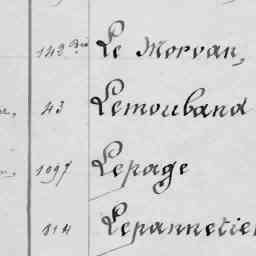 142 Bis Le Morvan,
43 Lemouband
1097 Lepage
114 Lepannetier